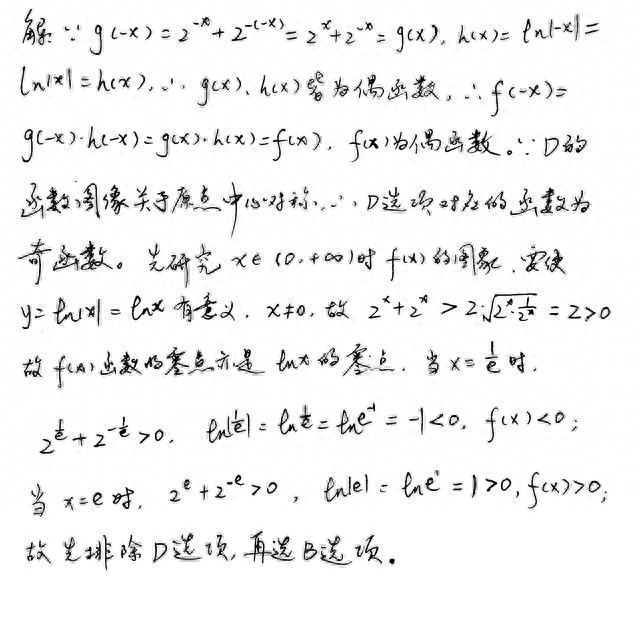 解: ∵ g(-x) = 2^{-x} + 2^{-(-x)} = 2^x + 2^{-x} = g(x), h(x) = ln|-x| =
ln|x| = h(x), ∴ g(x), h(x)皆为偶函数, ∴ f(-x) =
g(-x)·h(-x) = g(x)·h(x) = f(x), f(x)为偶函数。∵ D的
函数图像关于原点中心对称, ∴ D选项对应的函数为
奇函数。先研究 x∈(0,+∞)时 f(x)的图象, 要使
y = ln|x| = lnx 有意义, x≠0, 故 2^x + 2^x > 2·√(2^x·1/2^x) = 2>0
故 f(x)函数的零点亦是 lnx 的零点, 当 x = 1/e 时,
2^{1/e} + 2^{-1/e} > 0, ln|1/e| = ln 1/e = lne^{-1} = -1<0, f(x)<0;
当 x = e 时, 2^e + 2^{-e} > 0, ln|e| = lne^1 = 1>0, f(x)>0;
故先排除D选项, 再选B选项。